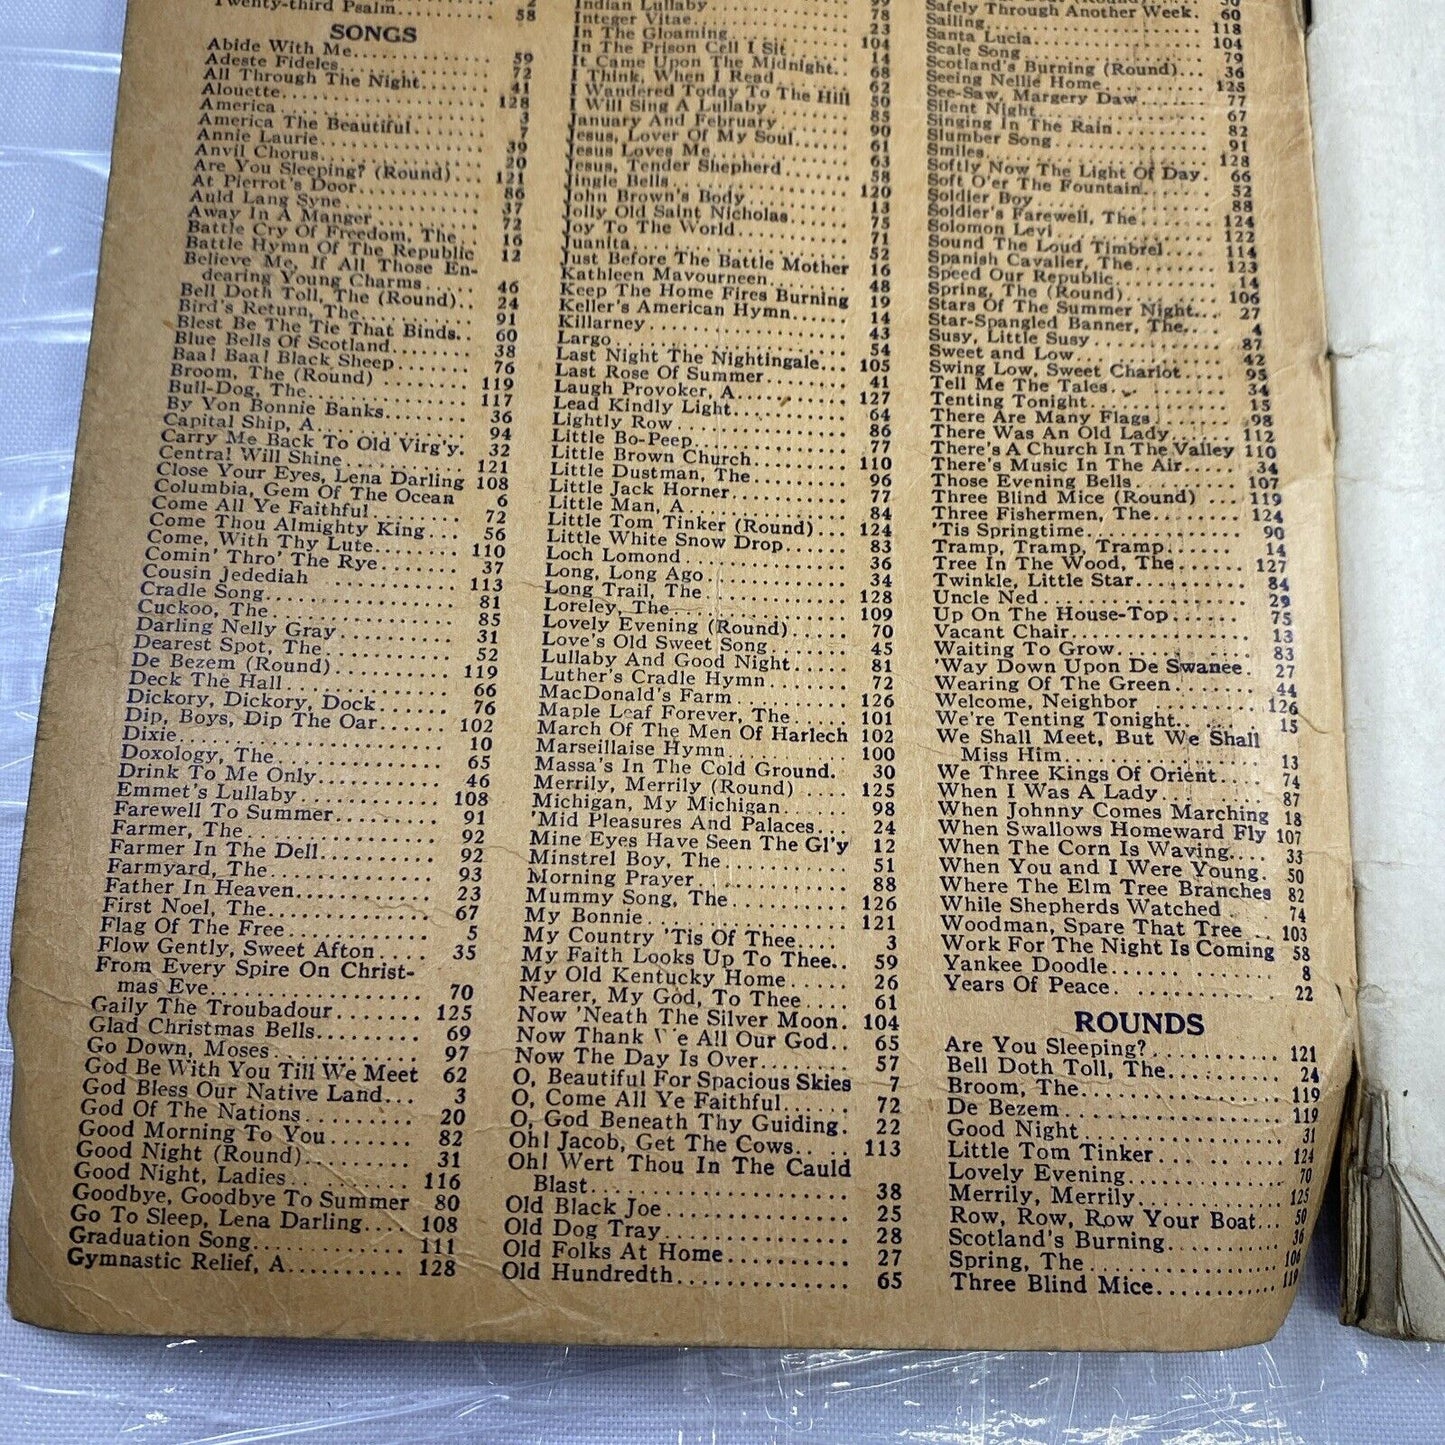 Twenty-third Psalm 58
SONGS
Abide With Me 59
Adeste Fideles 72
All Through The Night 41
Alouette 128
America 3
America The Beautiful 7
Annie Laurie 39
Anvil Chorus 20
Are You Sleeping? (Round) 121
At Pierrot's Door 86
Auld Lang Syne 37
Away In A Manger 72
Battle Cry Of Freedom, The 16
Battle Hymn Of The Republic 12
Believe Me, If All Those En-
dearing Young Charms 46
Bell Doth Toll, The (Round) 24
Bird's Return, The 91
Blest Be The Tie That Binds 60
Blue Bells Of Scotland 38
Baa! Baa! Black Sheep 76
Broom, The (Round) 119
Bull-Dog, The 117
By Yon Bonnie Banks 36
Capital Ship, A 94
Carry Me Back To Old Virg'y. 32
Central Will Shine 121
Close Your Eyes, Lena Darling 108
Columbia, Gem Of The Ocean 6
Come All Ye Faithful 72
Come Thou Almighty King 56
Come, With Thy Lute 110
Comin' Thro' The Rye 37
Cousin Jedediah 113
Cradle Song 81
Cuckoo, The 85
Darling Nelly Gray 31
Dearest Spot, The 52
De Bezem (Round) 119
Deck The Hall 66
Dickory, Dickory, Dock 76
Dip, Boys, Dip The Oar 102
Dixie 10
Doxology, The 65
Drink To Me Only 46
Emmet's Lullaby 108
Farewell To Summer 91
Farmer, The 92
Farmer In The Dell 92
Farmyard, The 93
Father In Heaven 23
First Noel, The 67
Flag Of The Free 5
Flow Gently, Sweet Afton 35
From Every Spire On Christ-
mas Eve 70
Gaily The Troubadour 125
Glad Christmas Bells 69
Go Down, Moses 97
God Be With You Till We Meet 62
God Bless Our Native Land 3
God Of The Nations 20
Good Morning To You 82
Good Night (Round) 31
Good Night, Ladies 116
Goodbye, Goodbye To Summer 80
Go To Sleep, Lena Darling 108
Graduation Song 111
Gymnastic Relief, A 128
Indian Lullaby 78
Integer Vitae 23
In The Gloaming 104
In The Prison Cell I Sit 14
It Came Upon The Midnight 68
I Think, When I Read 62
I Wandered Today To The Hill 50
I Will Sing A Lullaby 85
January And February 90
Jesus, Lover Of My Soul 61
Jesus Loves Me 63
Jesus, Tender Shepherd 58
Jingle Bells 120
John Brown's Body 13
Jolly Old Saint Nicholas 75
Joy To The World 71
Juanita 52
Just Before The Battle Mother 16
Kathleen Mavourneen 48
Keep The Home Fires Burning 19
Keller's American Hymn 14
Killarney 43
Largo 54
Last Night The Nightingale 105
Last Rose Of Summer 41
Laugh Provoker, A 127
Lead Kindly Light 64
Lightly Row 86
Little Bo-Peep 77
Little Brown Church 110
Little Dustman, The 96
Little Jack Horner 77
Little Man, A 84
Little Tom Tinker (Round) 124
Little White Snow Drop 83
Loch Lomond 36
Long, Long Ago 34
Long Trail, The 128
Loreley, The 109
Lovely Evening (Round) 70
Love's Old Sweet Song 45
Lullaby And Good Night 81
Luther's Cradle Hymn 72
MacDonald's Farm 126
Maple Leaf Forever, The 101
March Of The Men Of Harlech 102
Marseillaise Hymn 100
Massa's In The Cold Ground. 30
Merrily, Merrily (Round) 125
Michigan, My Michigan 98
'Mid Pleasures And Palaces 24
Mine Eyes Have Seen The Gl'y 12
Minstrel Boy, The 51
Morning Prayer 88
Mummy Song, The 126
My Bonnie 121
My Country 'Tis Of Thee 3
My Faith Looks Up To Thee 59
My Old Kentucky Home 26
Nearer, My God, To Thee 61
Now 'Neath The Silver Moon. 104
Now Thank We All Our God 65
Now The Day Is Over 57
O, Beautiful For Spacious Skies 7
O, Come All Ye Faithful 72
O, God Beneath Thy Guiding. 22
Oh! Jacob, Get The Cows 113
Oh! Wert Thou In The Cauld
Blast 38
Old Black Joe 25
Old Dog Tray 28
Old Folks At Home 27
Old Hundredth 65
Safely Through Another Week. 60
Sailing 118
Santa Lucia 104
Scale Song 79
Scotland's Burning (Round) 36
Seeing Nellie Home 125
See-Saw, Margery Daw 77
Silent Night 67
Singing In The Rain 82
Slumber Song 91
Smiles 128
Softly Now The Light Of Day. 66
Soft O'er The Fountain 52
Soldier Boy 88
Soldier's Farewell, The 124
Solomon Levi 122
Sound The Loud Timbrel 114
Spanish Cavalier, The 123
Speed Our Republic 14
Spring, The (Round) 106
Stars Of The Summer Night 27
Star-Spangled Banner, The 4
Susy, Little Susy 87
Sweet and Low 42
Swing Low, Sweet Chariot 95
Tell Me The Tales 34
Tenting Tonight 15
There Are Many Flags 98
There Was An Old Lady 112
There's A Church In The Valley 110
There's Music In The Air 34
Those Evening Bells 107
Three Blind Mice (Round) 119
Three Fishermen, The 124
'Tis Springtime 90
Tramp, Tramp, Tramp 14
Tree In The Wood, The 127
Twinkle, Little Star 84
Uncle Ned 29
Up On The House-Top 75
Vacant Chair 13
Waiting To Grow 83
'Way Down Upon De Swanee. 27
Wearing Of The Green 44
Welcome, Neighbor 126
We're Tenting Tonight 15
We Shall Meet, But We Shall
Miss Him 13
We Three Kings Of Orient 74
When I Was A Lady 87
When Johnny Comes Marching 18
When Swallows Homeward Fly 107
When The Corn Is Waving 33
When You and I Were Young. 50
Where The Elm Tree Branches 82
While Shepherds Watched 74
Woodman, Spare That Tree 103
Work For The Night Is Coming 58
Yankee Doodle 8
Years Of Peace 22
ROUNDS
Are You Sleeping? 121
Bell Doth Toll, The 24
Broom, The 119
De Bezem 119
Good Night 31
Little Tom Tinker 124
Lovely Evening 70
Merrily, Merrily 125
Row, Row, Row Your Boat 50
Scotland's Burning 36
Spring, The 106
Three Blind Mice 119